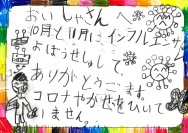 おいしゃさんへ
10月と11月にインフルエンザ
よぼうせっしゅして、
ありがとうごます。
コロナやかぜをひいて
いません。